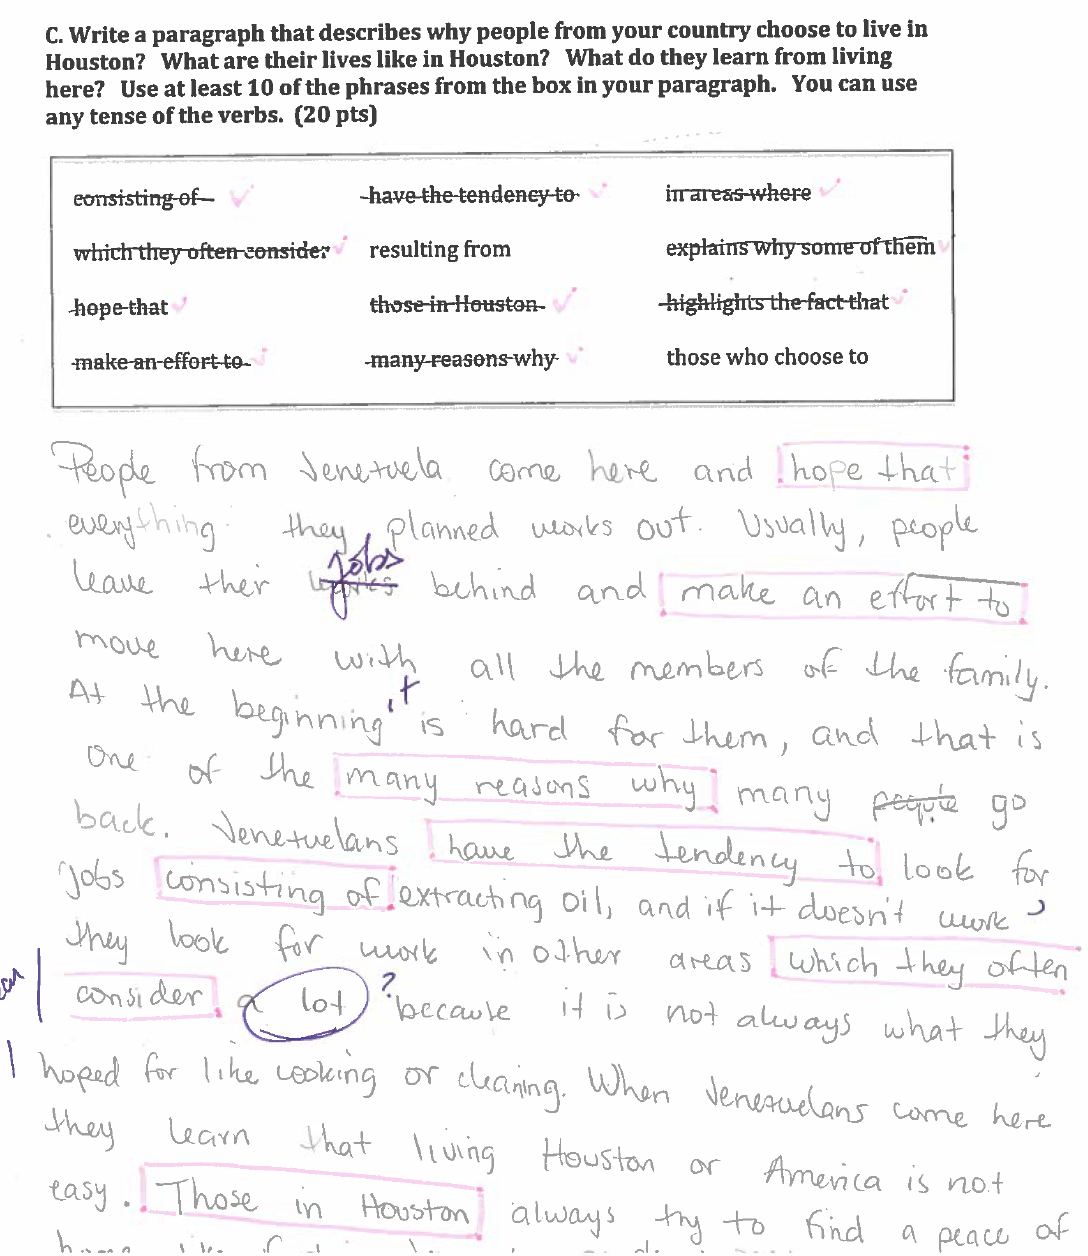 C. Write a paragraph that describes why people from your country choose to live in
Houston? What are their lives like in Houston? What do they learn from living
here? Use at least 10 of the phrases from the box in your paragraph. You can use
any tense of the verbs. (20 pts)
consisting of have the tendency to in areas where
which they often consider resulting from explains why some of them
hope that those in Houston highlights the fact that
make an effort to many reasons why those who choose to
People from Venezuela come here and hope that
everything they planned works out. Usually, people
jobs
leave their behind and make an effort to
move here with all the members of the family.
it
At the beginning is hard for them, and that is
one of the many reasons why many people go
back. Venezuelans have the tendency to look for
jobs consisting of extracting oil, and if it doesn't work,
they look for work in other areas which they often
consider a lot ? because it is not always what they
hoped for like cooking or cleaning. When Venezuelans come here
they learn that living Houston or America is not
easy. Those in Houston always try to find a peace of
home like